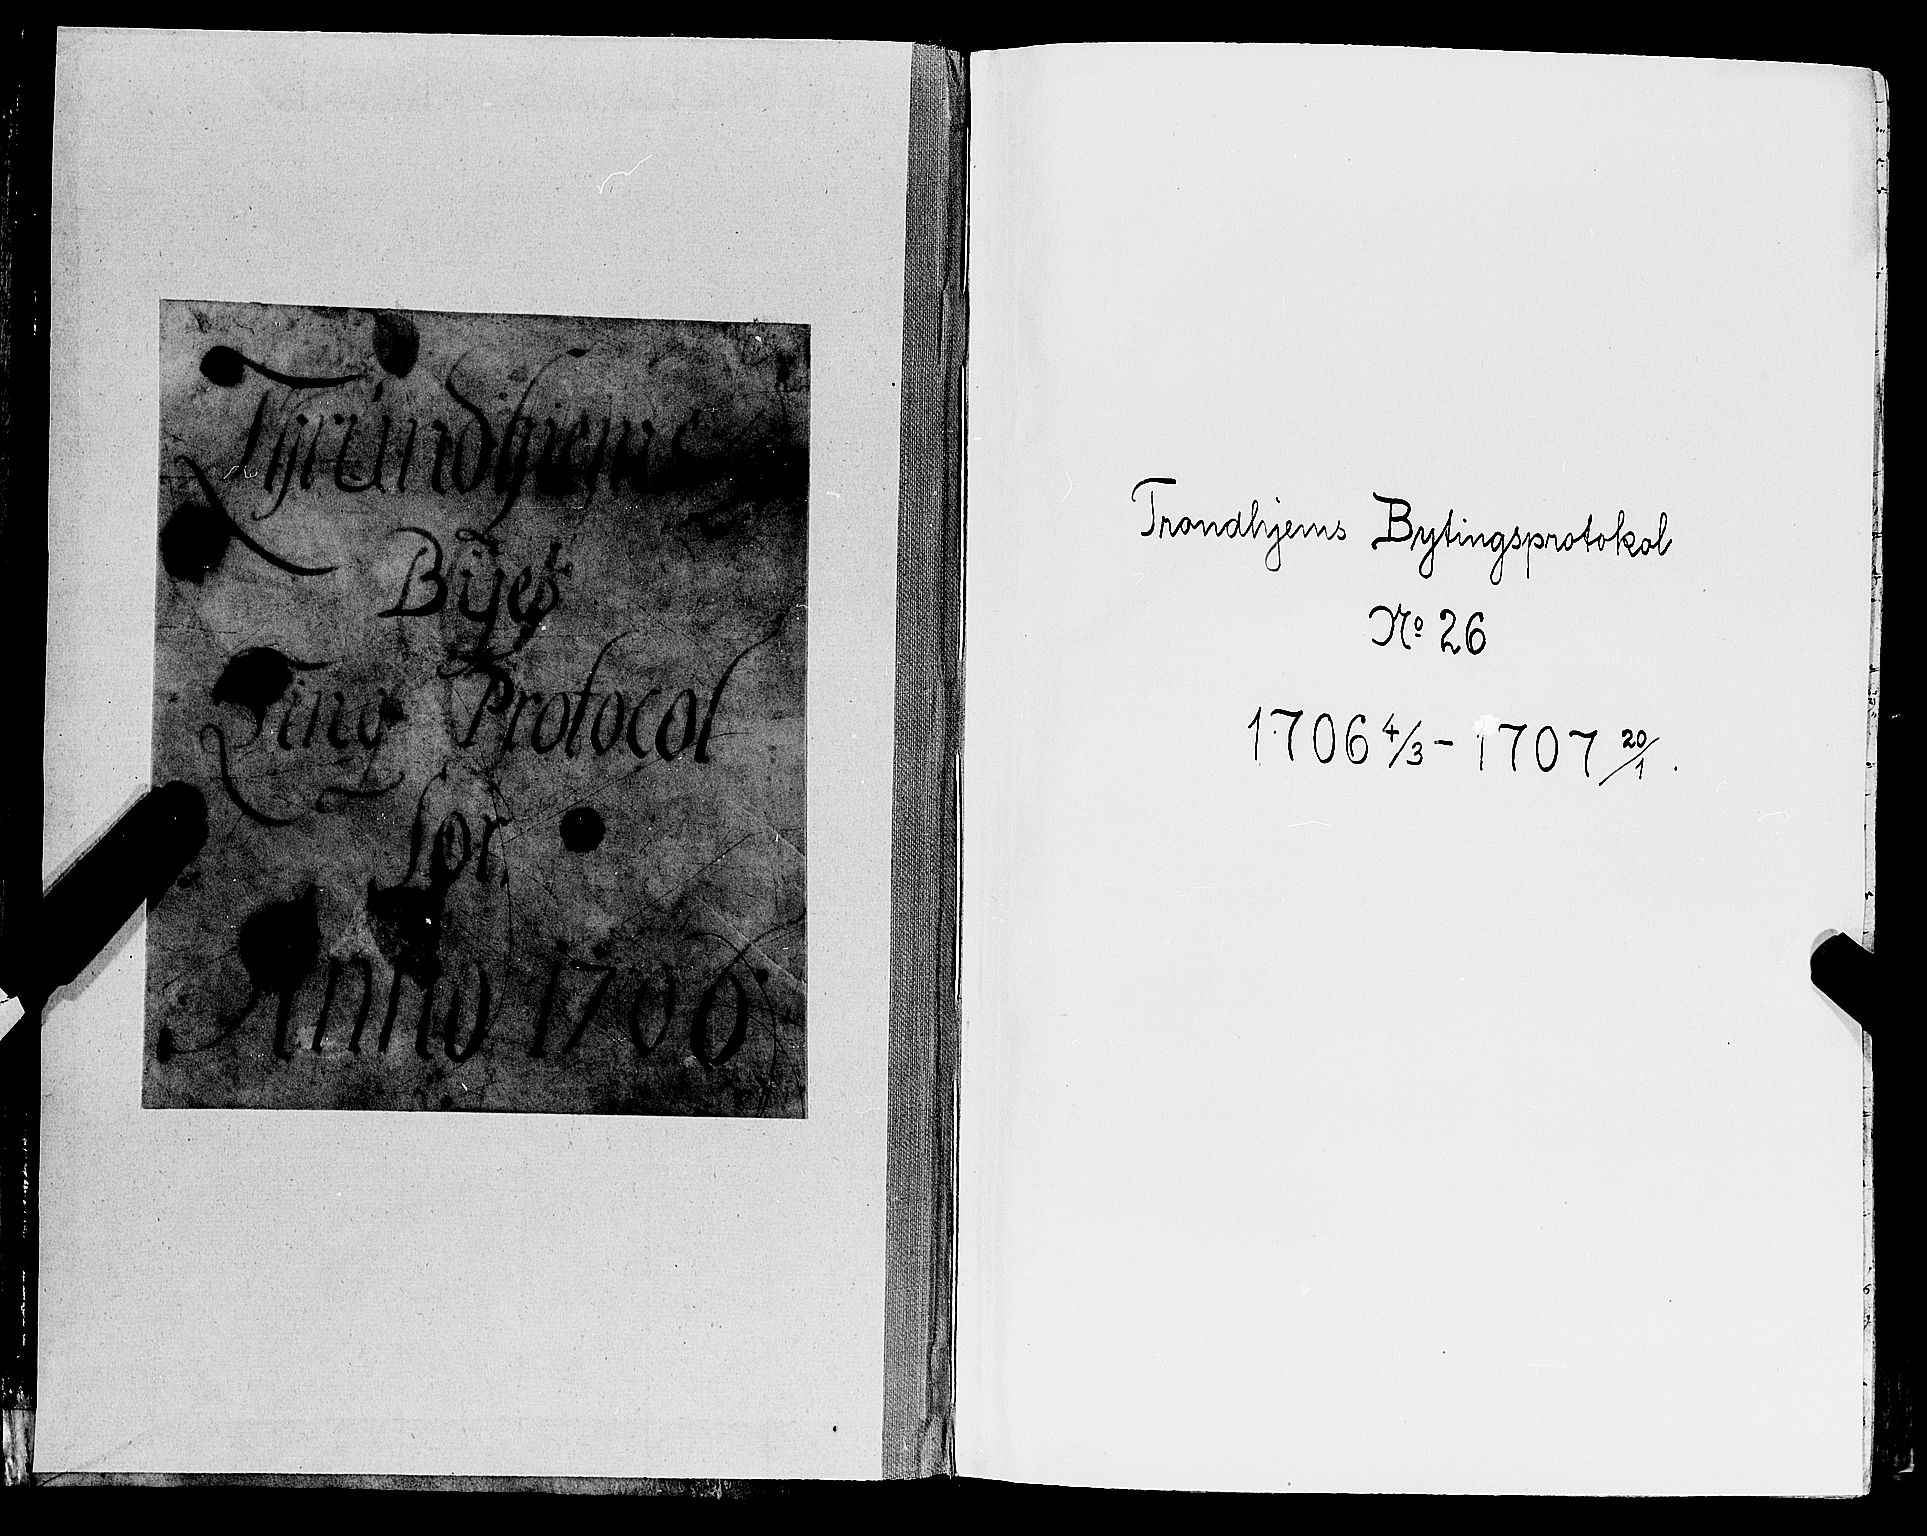 Thrundhiems
Byes
Ting Protocol
for
Anno 1706
Trondhjems Bytingsprotokol
No 26
1706 4/3 - 1707 20/1.